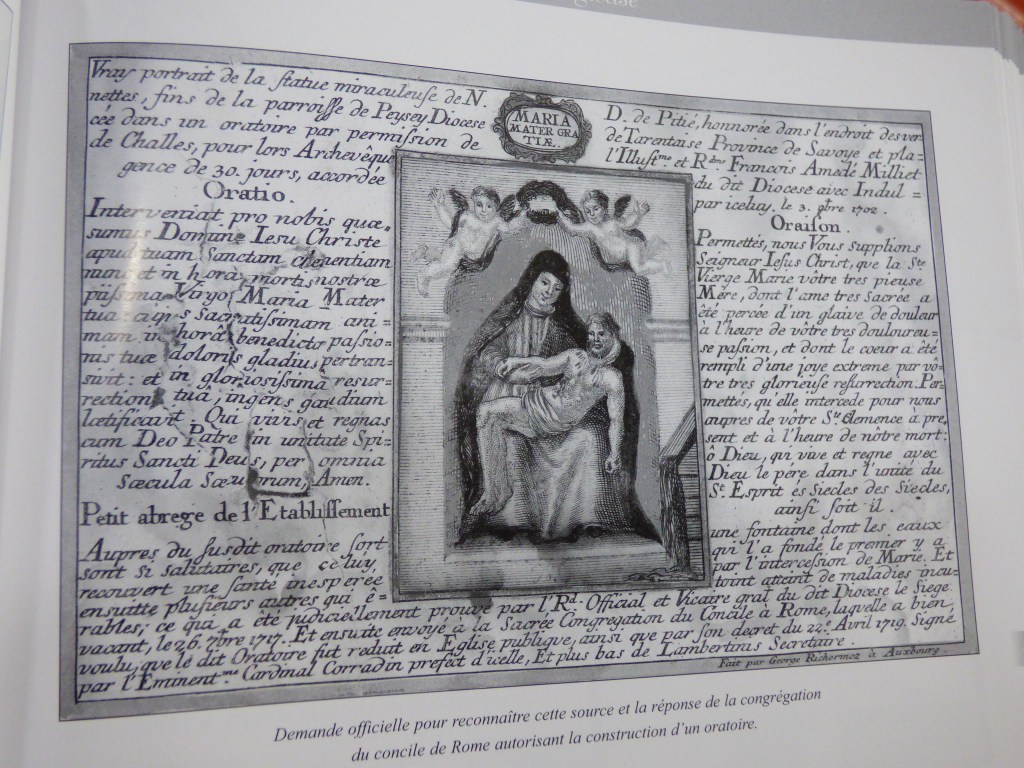 MARIA
MATER GRA
TIÆ.
Vray portrait de la statue miraculeuse de N. D. de Pitié, honnorée dans l'endroit des ver=
nettes, fins de la parroisse de Peysey Diocese de Tarentaise Province de Savoye et pla=
cée dans un oratoire par permission de l'Illust.me et R.dme Francois Amedé Milliet
de Challes, pour lors Archevêque du dit Diocese avec Indul=
gence de 30. jours, accordée par iceluy, le 3. 9bre 1702.
Oratio.
Interveniat pro nobis quæ,
sumus Domine Iesu Christe
apud tuam Sanctam clementiam
nunc et in horâ mortis nostræ
piissima Virgo Maria Mater
tua: cujus Sacratissimam ani=
mam in horâ benedictæ passio=
nis tuæ doloris gladius pertran=
sivit: et in gloriosissima resur=
rectione tua, ingens gaudium
lætificavit. Qui vivis et regnas
cum Deo Patre in unitate Spi=
ritus Sancti Deus, per omnia
Sæcula Sæculorum, Amen.
Oraison.
Permettés, nous Vous supplions
Seigneur Iesus Christ, que la Ste
Vierge Marie vôtre tres pieuse
Mére, dont l'ame tres Sacrée a
été percée d'un glaive de douleur
à l'heure de vôtre tres douloureu=
se passion, et dont le coeur a été
rempli d'une joye extreme par vô=
tre tres glorieuse resurrection. Per=
mettés, qu'elle intercede pour nous
aupres de vôtre Ste Clemence à pre,
sent et à l'heure de notre mort:
ô Dieu, qui vive et regne avec
Dieu le pére dans l'unité du
St. Esprit ès Siecles des Siecles,
ainsi soit il.
Petit abrege de l'Etablissement
Aupres du susdit oratoire sort une fontaine dont les eaux
sont si salutaires, que celuy, qui l'a fondé le premier y a
recouvert une santé inesperée par l'intercession de Marie. Et
ensuitte plusieurs autres qui é= toint atteint de maladies incu=
rables; ce qui a été judiciellement prouvé par l'Rd. Official et Vicaire gral du dit Diocese le Siege
vacant, le 26. 7bre 1717. Et ensuite envoyé à la Sacrée Congregation du Concile à Rome, laquelle a bien
voulu, que le dit Oratoire fut reduit en Eglise publique, ainsi que par son decret du 22e. Avril 1719. Signé
par l'Eminent.me Cardinal Corradin prefect d'icelle, Et plus bas de Lambertinis Secretaire.
Fait par George Richermoz à Auxbourg.
Demande officielle pour reconnaître cette source et la réponse de la congrégation
du concile de Rome autorisant la construction d'un oratoire.